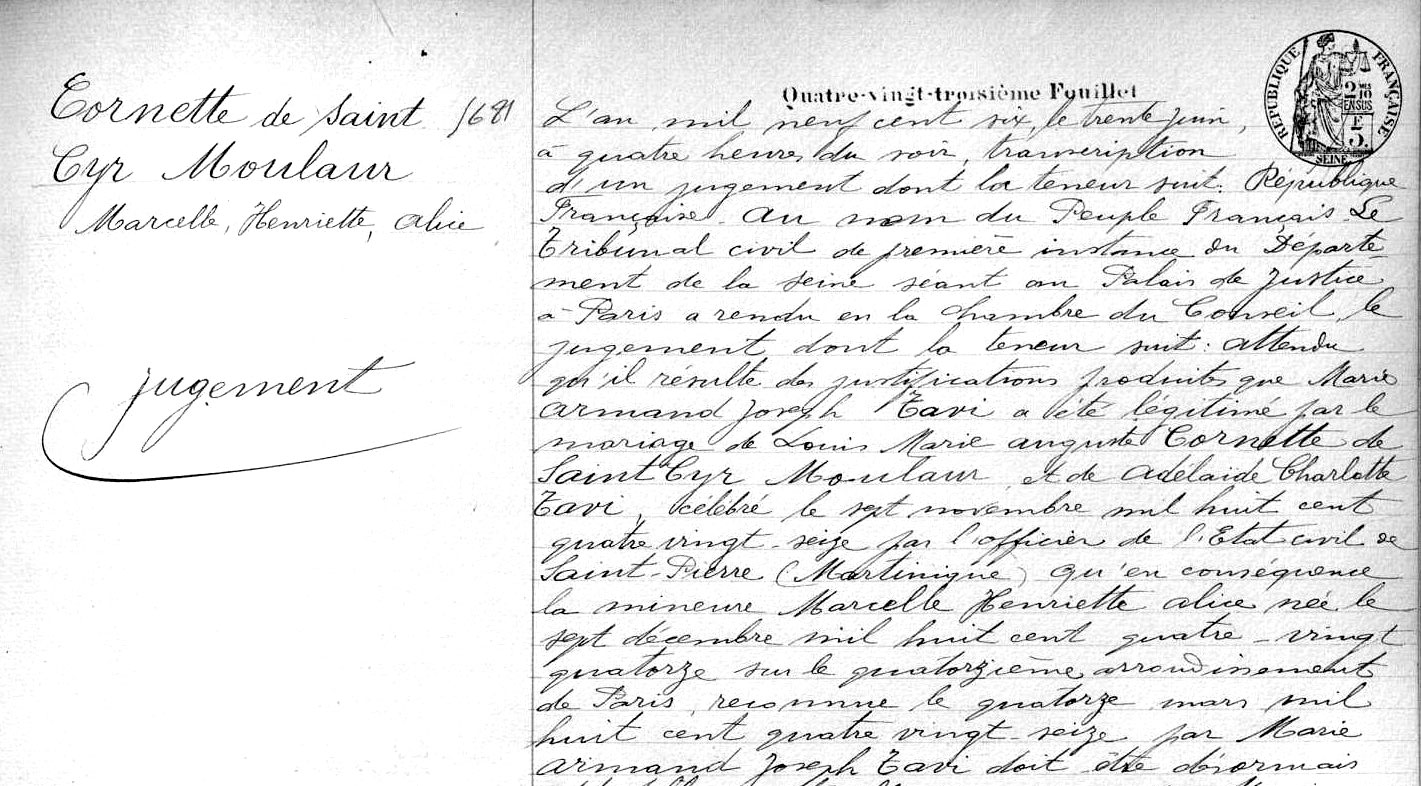 Cornette de Saint 1681
Cyr Moulaur
Marcelle, Henriette, Alice
jugement
Quatre-vingt-troisième Feuillet
RÉPUBLIQUE FRANÇAISE
2 10
EN SUS
F
5.
SEINE
L'an mil neuf cent six, le trente juin,
à quatre heures du soir, transcription
d'un jugement dont la teneur suit: République
Française. Au nom du Peuple Français. Le
Tribunal civil de première instance du Départe-
ment de la Seine séant au Palais de Justice
à Paris a rendu en la Chambre du Conseil, le
jugement dont la teneur suit: attendu
qu'il résulte des justifications produites que Marie
Armand Joseph Tavi a été légitimé par le
mariage de Louis Marie Auguste Cornette de
Saint Cyr Moulaur, et de Adélaïde Charlotte
Tavi, célébré le sept novembre mil huit cent
quatre vingt-seize par l'officier de l'Etat civil de
Saint-Pierre (Martinique) qu'en conséquence
la mineure Marcelle Henriette Alice née le
sept décembre mil huit cent quatre-vingt
quatorze sur le quatorzième arrondissement
de Paris, reconnue le quatorze mars mil
huit cent quatre vingt-seize par Marie
Armand Joseph Tavi doit être désormais